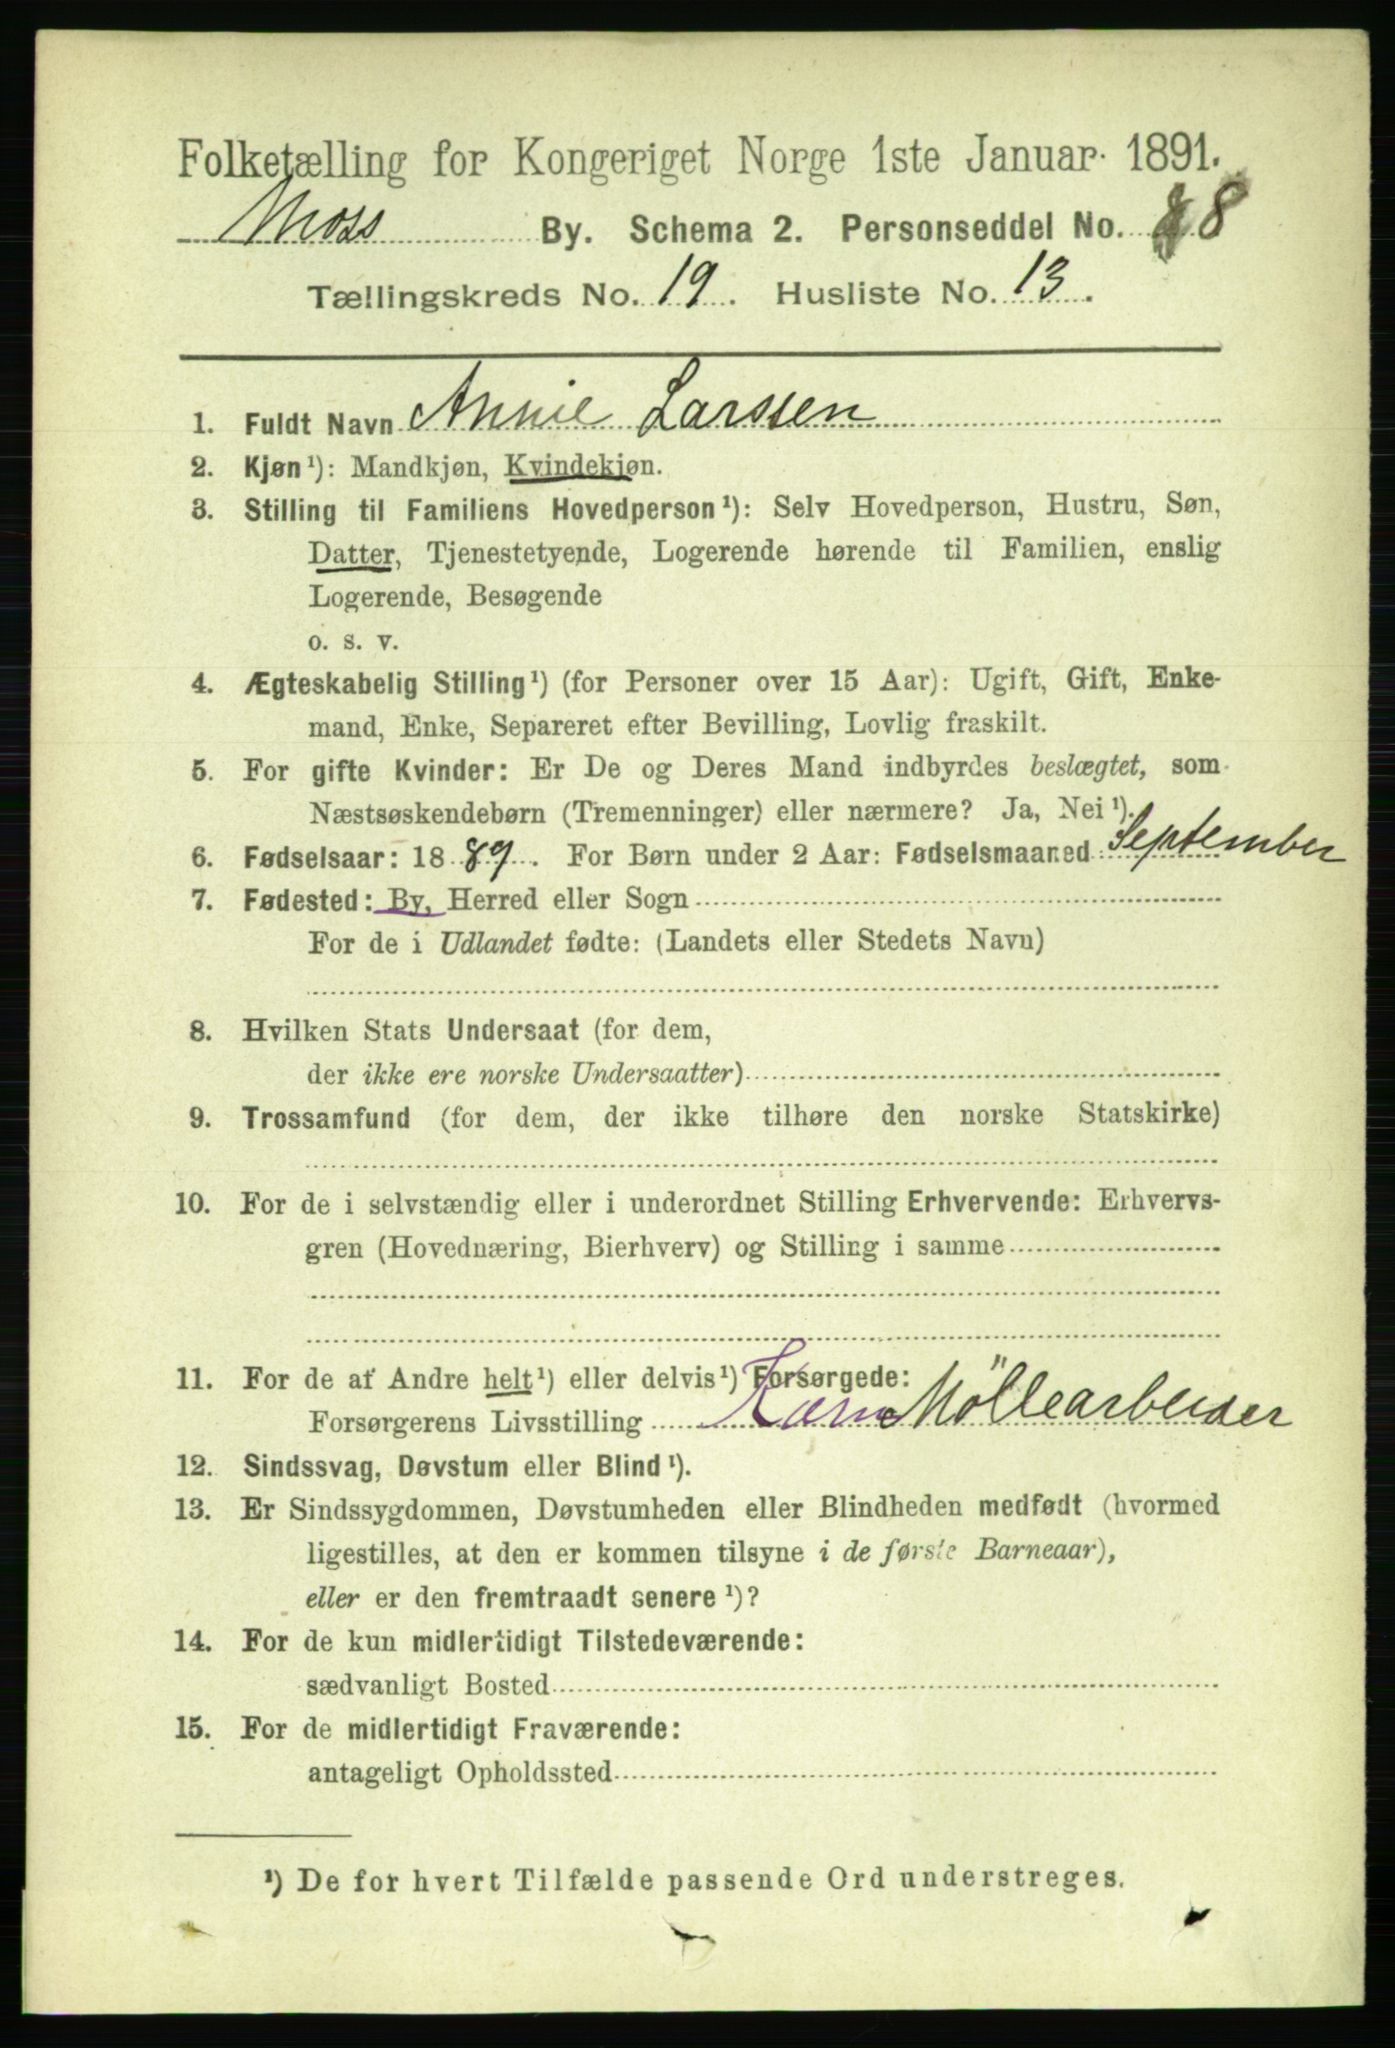 Folketælling for Kongeriget Norge 1ste Januar 1891.
Moss By. Schema 2. Personseddel No. 8
Tællingskreds No. 19. Husliste No. 13.
1. Fuldt Navn Annie Larssen
2. Kjøn¹): Mandkjøn, Kvindekjøn.
3. Stilling til Familiens Hovedperson¹): Selv Hovedperson, Hustru, Søn,
Datter, Tjenestetyende, Logerende hørende til Familien, enslig
Logerende, Besøgende
o. s. v.
4. Ægteskabelig Stilling¹) (for Personer over 15 Aar): Ugift, Gift, Enke-
mand, Enke, Separeret efter Bevilling, Lovlig fraskilt.
5. For gifte Kvinder: Er De og Deres Mand indbyrdes beslægtet, som
Næstsøskendebørn (Tremenninger) eller nærmere? Ja, Nei¹).
6. Fødselsaar: 1889. For Børn under 2 Aar: Fødselsmaaned September
7. Fødested: By, Herred eller Sogn
For de i Udlandet fødte: (Landets eller Stedets Navn)
8. Hvilken Stats Undersaat (for dem,
der ikke ere norske Undersaatter)
9. Trossamfund (for dem, der ikke tilhøre den norske Statskirke)
10. For de i selvstændig eller i underordnet Stilling Erhvervende: Erhvervs-
gren (Hovednæring, Bierhverv) og Stilling i samme
11. For de af Andre helt¹) eller delvis¹) Forsørgede:
Forsørgerens Livsstilling Korn Möllearbeider
12. Sindssvag, Døvstum eller Blind¹).
13. Er Sindssygdommen, Døvstumheden eller Blindheden medfødt (hvormed
ligestilles, at den er kommen tilsyne i de første Barneaar),
eller er den fremtraadt senere¹)?
14. For de kun midlertidigt Tilstedeværende:
sædvanligt Bosted
15. For de midlertidigt Fraværende:
antageligt Opholdssted
¹) De for hvert Tilfælde passende Ord understreges.